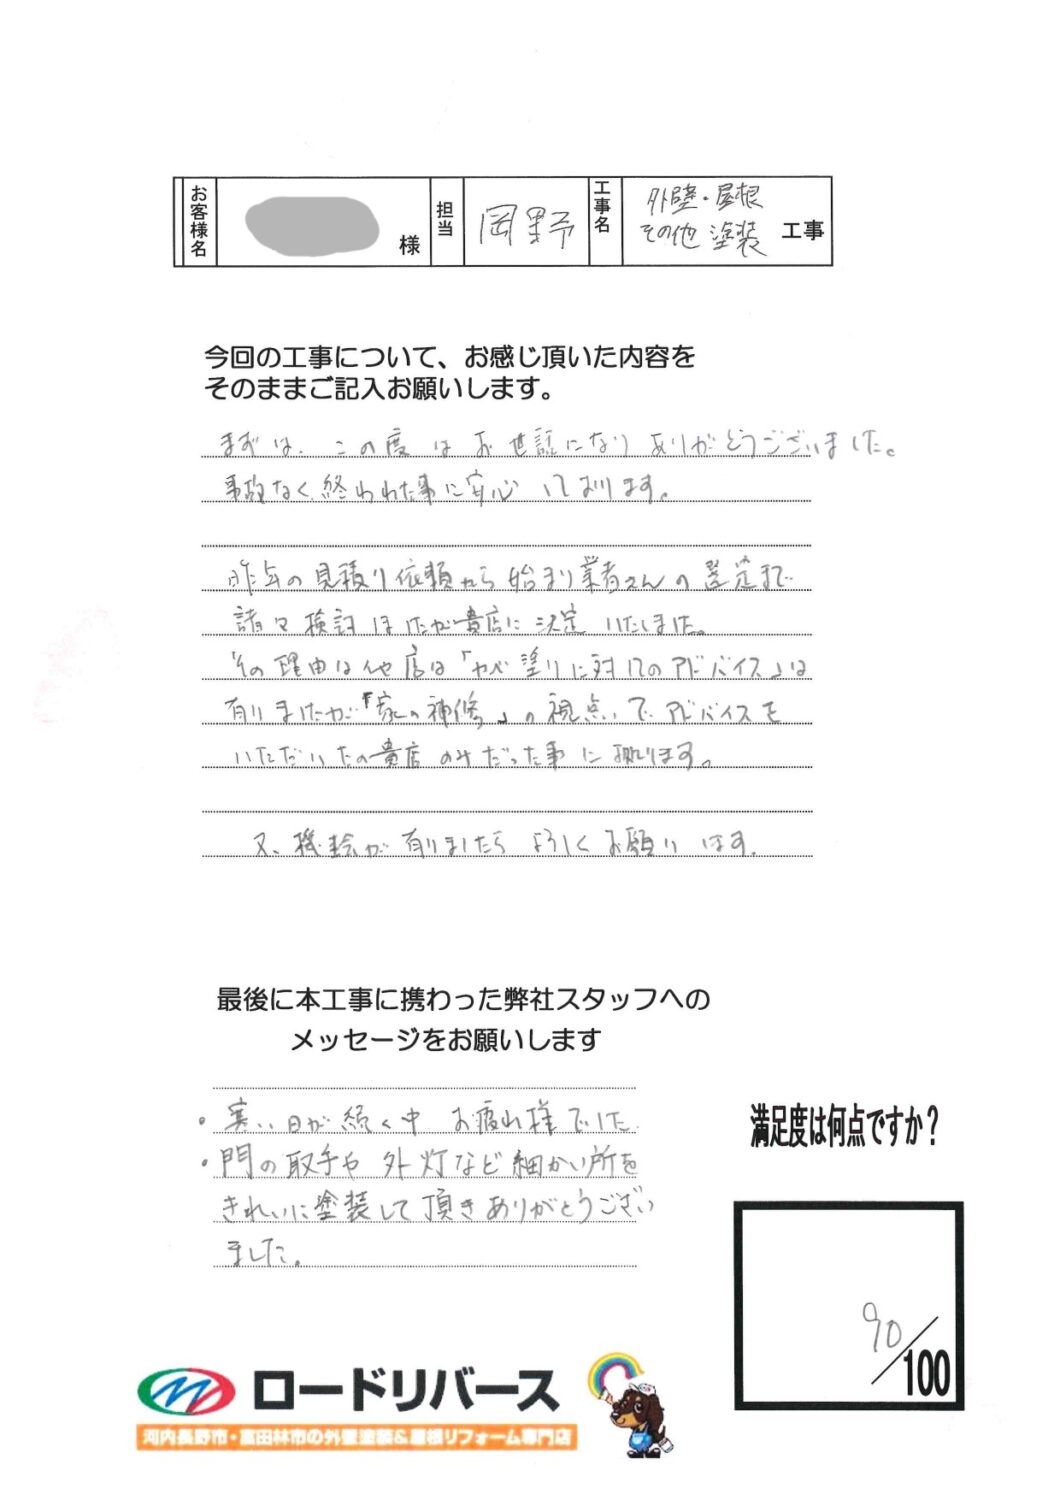 お客様名 様 担当 岡野 工事名 外壁・屋根 その他 塗装 工事
今回の工事について、お感じ頂いた内容を
そのままご記入お願いします。
まずは、この度はお世話になりありがとうございました。
事故なく終われた事に安心しております。
昨年の見積り依頼から始まり業者さんの選定まで
諸々検討しましたが貴店に決定いたしました。
その理由は他店は「カベ塗りに対してのアドバイス」は
有りましたが「家の補修」の視点でアドバイスを
いただいたの貴店のみだった事に拠ります。
又、機会が有りましたらよろしくお願いします。
最後に本工事に携わった弊社スタッフへの
メッセージをお願いします
・寒い日が続く中 お疲れ様でした
・門の取手や外灯など細かい所を
きれいに塗装して頂きありがとうござい
ました。
満足度は何点ですか？
90/100
ロードリバース
河内長野市・富田林市の外壁塗装&屋根リフォーム専門店